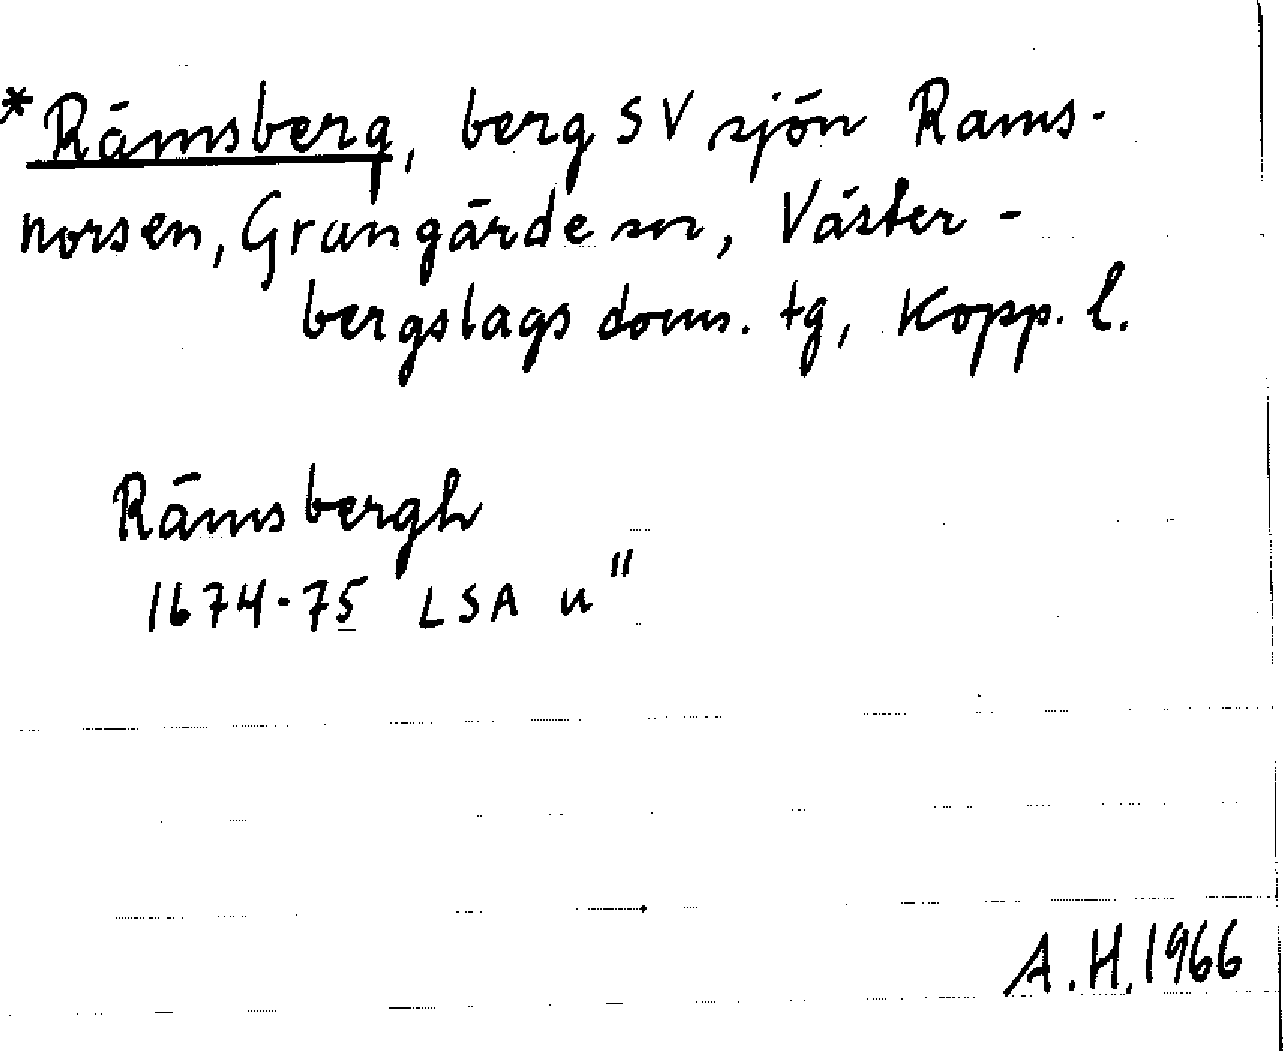 *Rämsberg, berg SV sjön Rams-
norsen, Grangärde sn, Väster-
bergslags doms. tg, Kopp. l.
Rämsbergh
1674-75 LSA u"
A.H. 1966